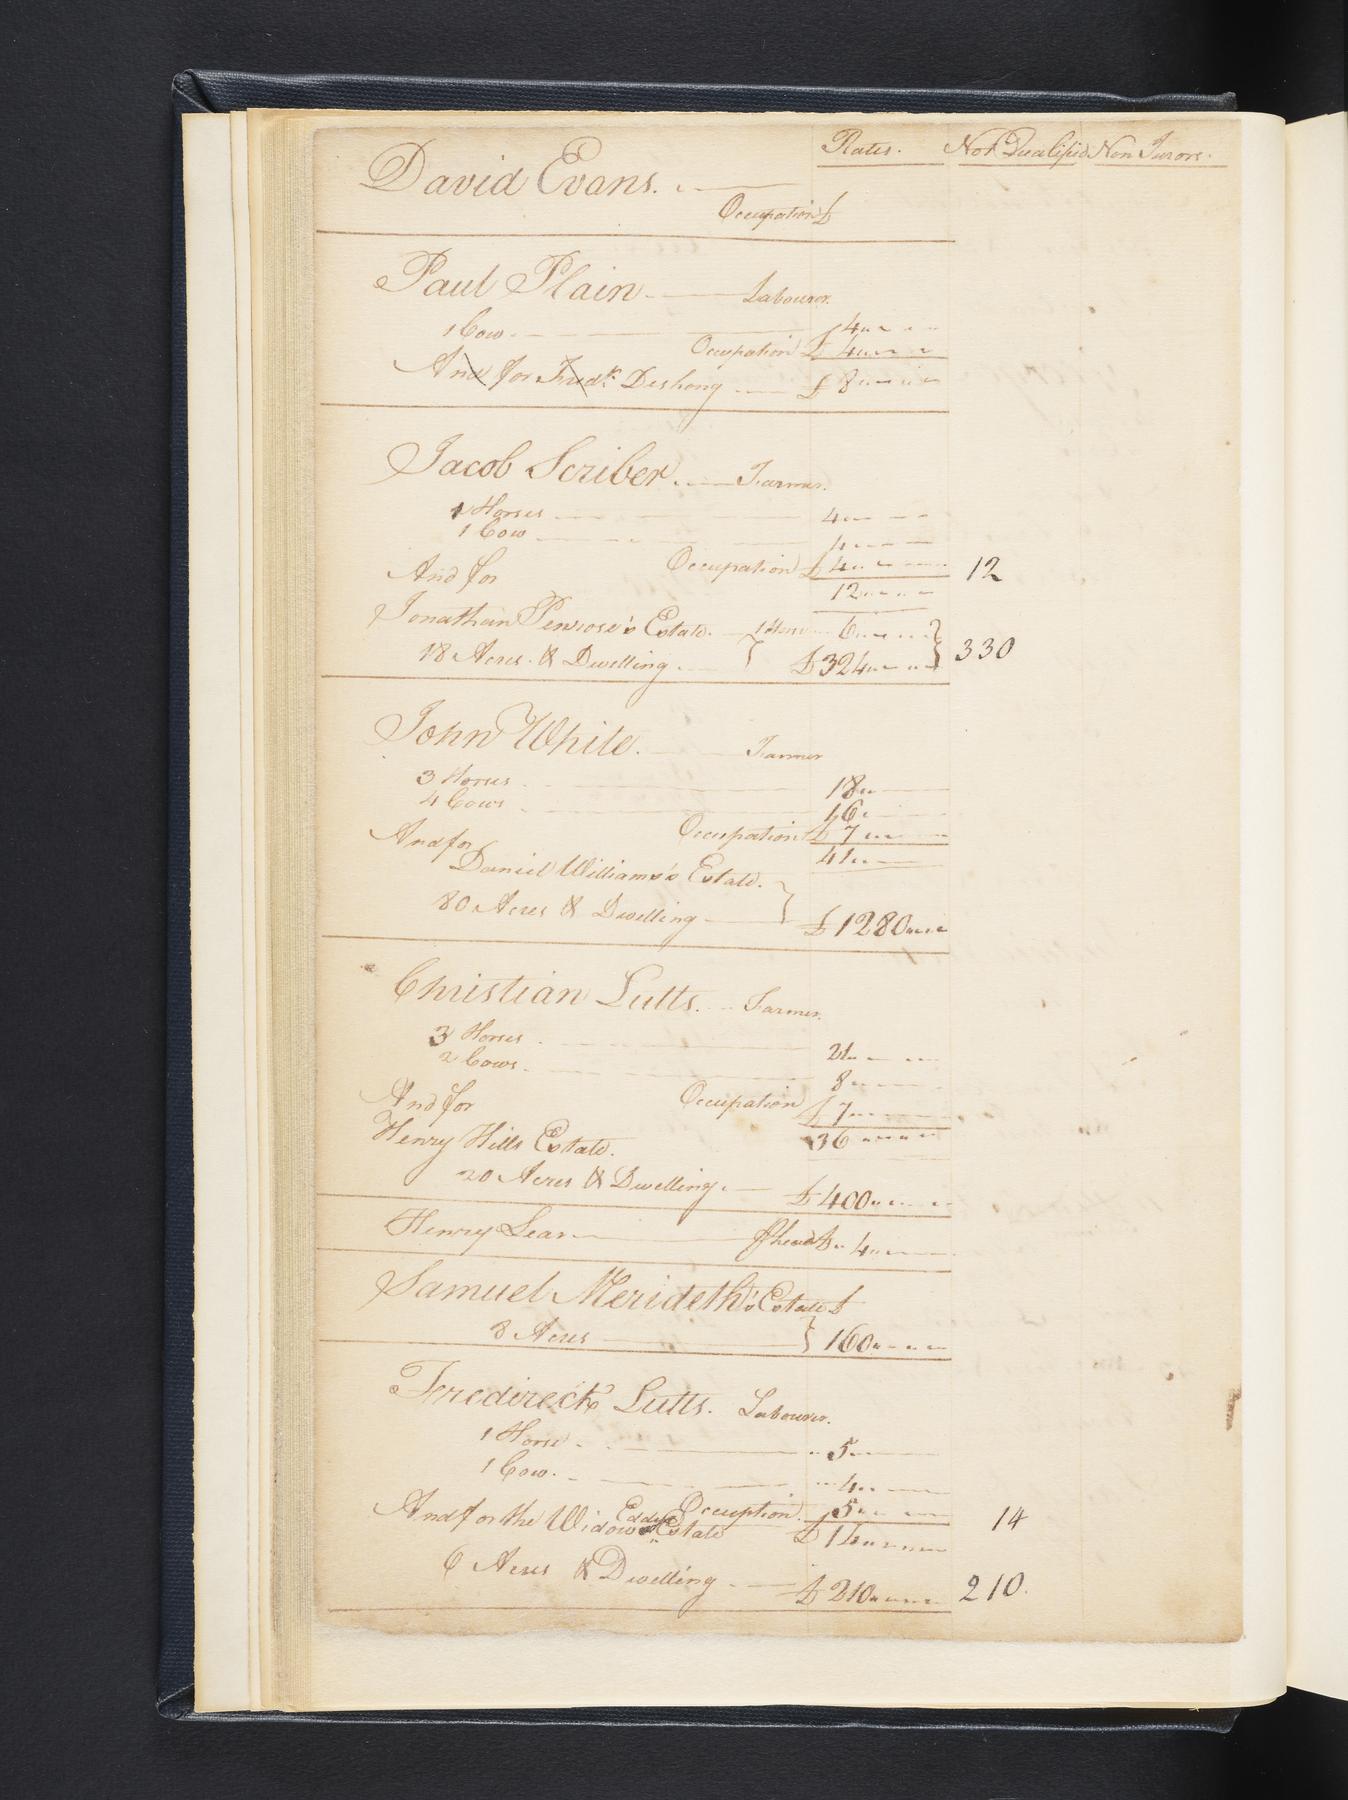 Rates. Not Qualified Non Jurors.
David Evans.
Occupation £
Paul Plain Labourer.
1 Cow 4
Occupation £ 4
And for Fredk. Deshong £ 8
Jacob Scriber. Farmer.
1 Horses 4
1 Cow 4
And for Occupation £ 4 12
12
Jonathan Penrose's Estate. 1 Horse 6
18 Acres & Dwelling. £ 324 330
John White. Farmer
3 Horses 18
4 Cows 16
And for Occupation £ 7
41
Daniel Williams's Estate.
80 Acres & Dwelling £ 1280
Christian Lutts. Farmer.
3 Horses 21
2 Cows 8
And for Occupation £ 7
36
Henry Hills Estate.
20 Acres & Dwelling. £ 400
Henry Lear £ 4
Samuel Merideth's Estate £
8 Acres 160
Fredireck Lutts. Labourer.
1 Horse 5
1 Cow. 4
Occuption. £ 5
And for the Widow Eddys Estate £ 14 14
6 Acres & Dwelling £ 210 210.